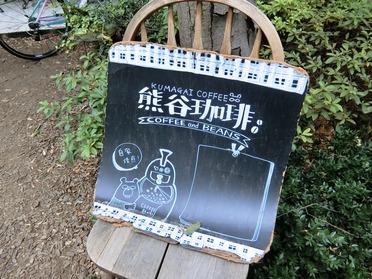 KUMAGAI COFFEE
熊谷珈琲
COFFEE and BEANS
自家
焙煎